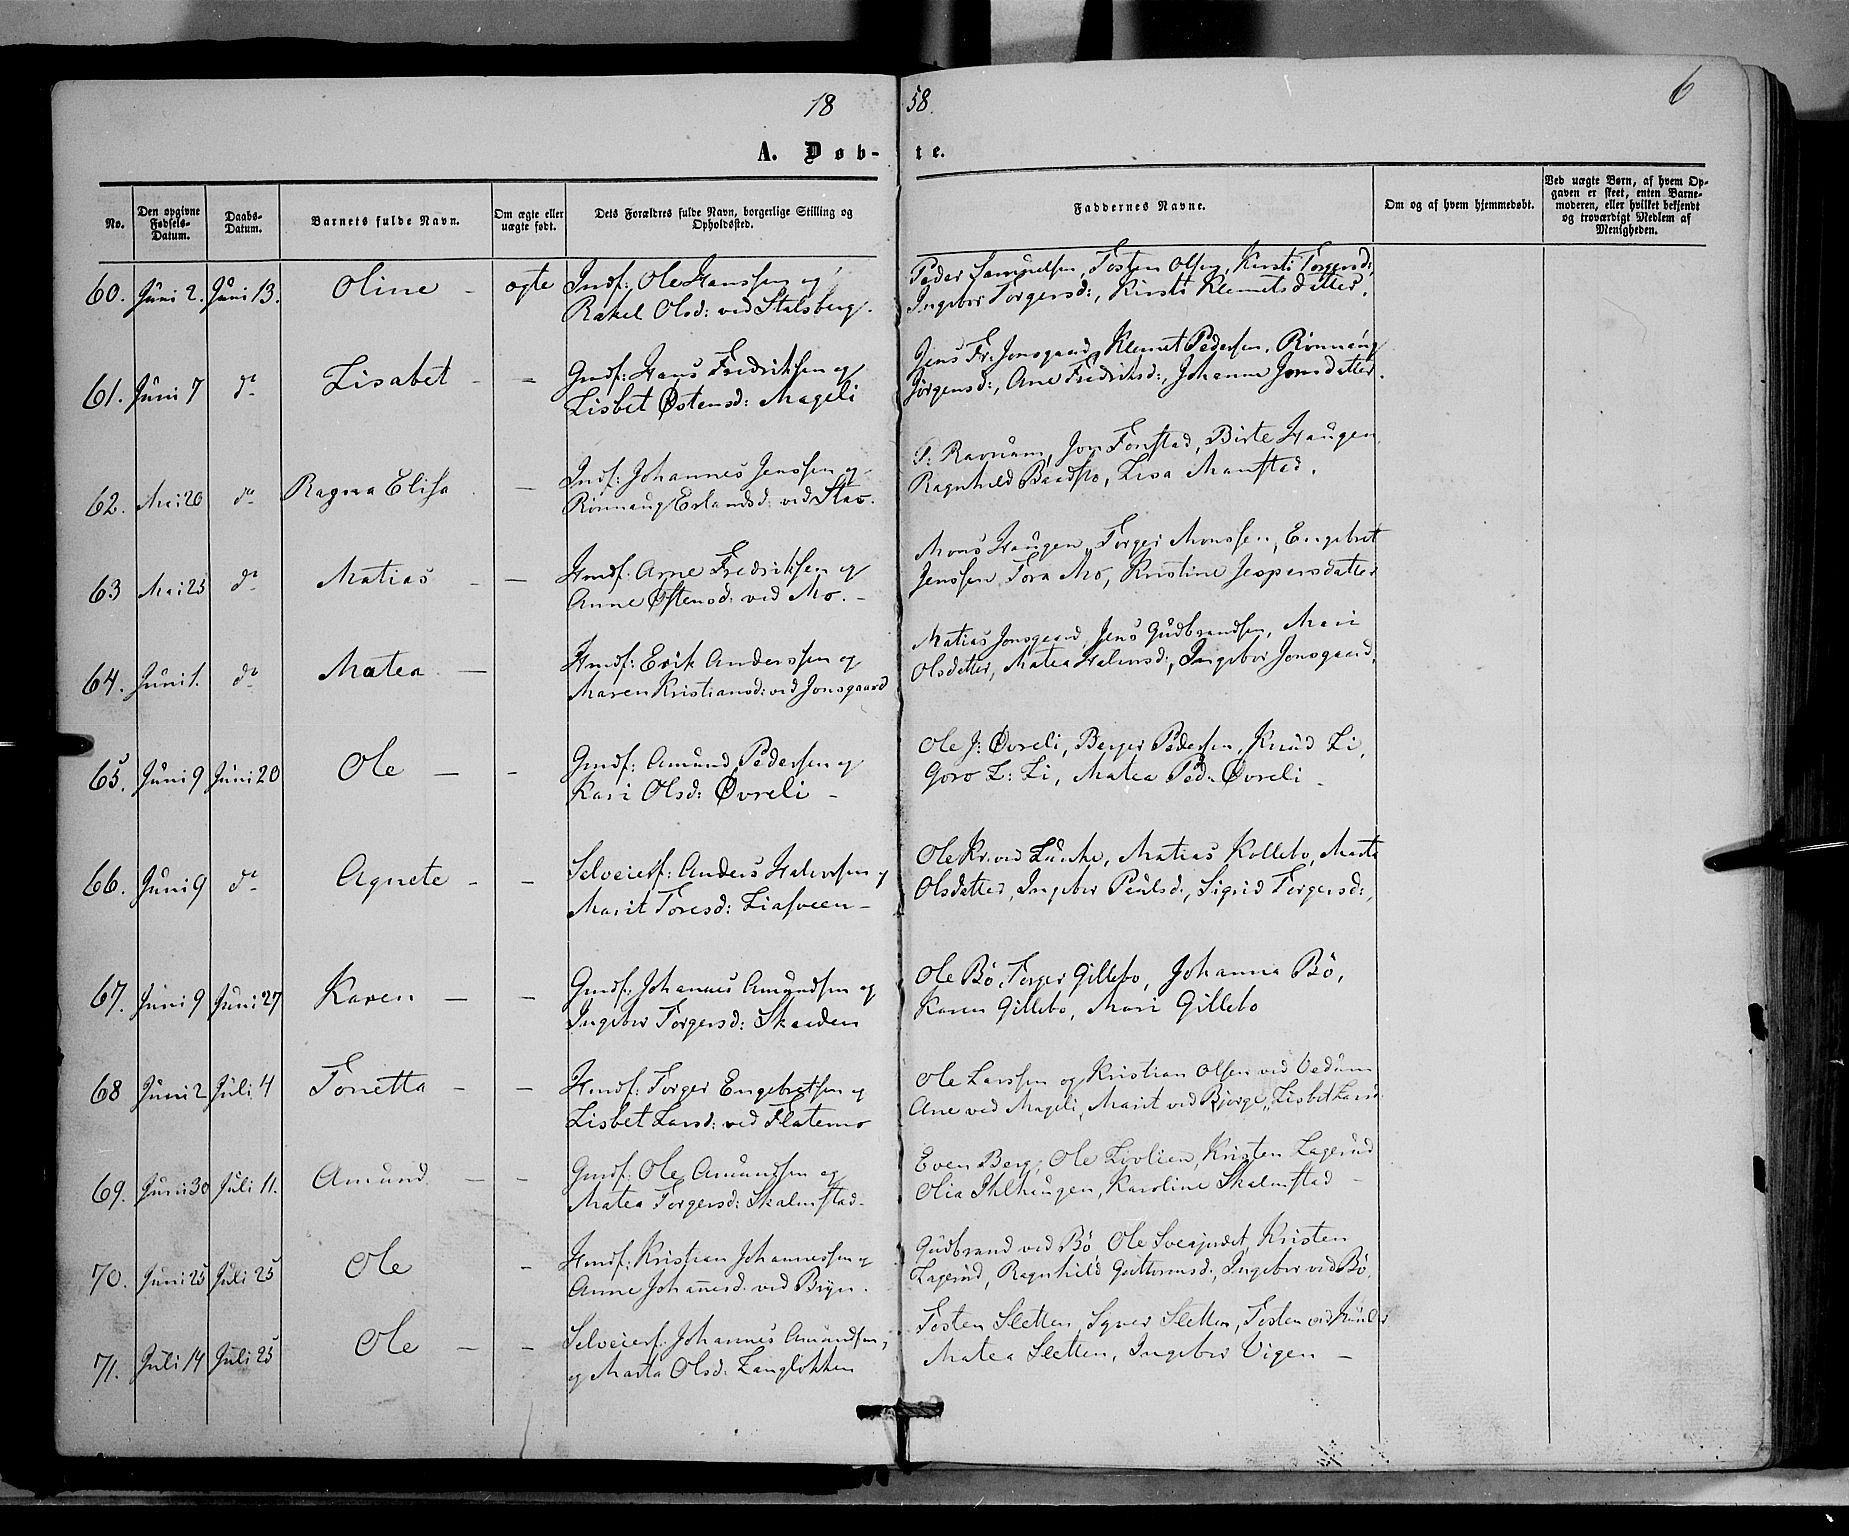 18 58. 6
A. Døb- te.
No. | Den opgivne Fødsels-Datum. | Daabs-Datum. | Barnets fulde Navn. | Om ægte eller uægte født. | Dets Forældres fulde Navn, borgerlige Stilling og Opholdssted. | Faddernes Navne. | Om og af hvem hjemmedøbt. | Ved uægte Børn, af hvem Opgaven er skeet, enten Barnemoderen, eller hvilket bekjendt og troværdigt Medlem af Menigheden.
60. Juni 2. Juni 13. Oline - ægte Indf: Ole Hanssen og
Rakel Olsd: ved Stalsberg.
Peder Samuelsen, Tosten Olsen, Kirsti Torgersd:,
Ingebor Torgersd:, Kirsti Klemetsdatter.
61. Juni 7 do Lisabet - - Gmdf: Hans Fredriksen og
Lisbet Østensd: Mageli
Jens Fr: Jonsgaard, Klemet Pedersen, Rønnaug
Jørgensd:, Ane Fredriksd:, Johanne Jonsdatter.
62. Mai 20 do Ragna Elisa - Indf: Johannes Jenssen og
Rønnaug Erlandsd: ved Stav.
P: Ravnum, Jon Fonstad, Birte Haugen
Ragnhild Baadstø, Lisa Manstad.
63 Mai 25 do Matias - - Hmdf: Arne Fredriksen og
Anne Østensd: ved Mo. -
Mons Haugen, Torger Monssen, Engebret
Jenssen, Tora Mo, Kristine Jespersdatter
64. Juni 1. do Matea - Hmdf: Erik Anderssen og
Maren Kristiansd: ved Jonsgaard
Matias Jonsgaard, Jens Gudbrandsen, Mari
Olsdatter, Matea Halvorsd:, Ingebor Jonsgaard.
65. Juni 9 Juni 20 Ole - - Gmdf: Amund Pedersen og
Kari Olsd: Øvreli -
Ole J: Øvreli, Berger Pedersen, Knud Li,
Goro L: Li, Matea Ped: Øvreli -
66. Juni 9 do Agnete - - Selveierf: Anders Halvorsen og
Marit Toresd: Liasveen -
Ole Kr. ved Lunke, Matias Kollebo, Marta
Olsdatter, Ingebor Paulsd:, Sigrid Torgersd:,
67. Juni 9 Juni 27 Karen - - Gmdf: Johannes Amundsen og
Ingebor Torgersd: Skaaden
Ole Bø, Torger Gillebo, Johanna Bø,
Karen Gillebo, Mari Gillebo
68 Juni 2 Juli 4 Tonetta - - Hmdf: Torger Engebretsen og
Lisbet Larsd: ved Flatemo
Ole Larssen og Kristian Olsen ved Vedum
Ane ved Mageli, Marit ved Bjørge, Lisbet Larsd:
69. Juni 30 Juli 11. Amund - - Gmdf: Ole Amundsen og
Matea Torgersd: Skalmstad -
Even Berg, Ole Livlien, Kristen Lagerud
Olia Ihlhaugen, Karoline Skalmstad -
70. Juni 25 Juli 25 Ole - Hmdf: Kristian Johannessen og
Anne Johanesd. ved Bryn.
Gudbrand ved Bø, Ole Sveajordet, Kristen
Lagerud, Ragnhild Guttormsd:, Ingebor ved Bø,
71. Juli 14 Juli 25 Ole - - Selveierf: Johannes Amundsen,
og Marta Olsd: Langløkken
Tosten Sletten, Syver Sletten, Tosten ved
Matea Sletten, Ingebor Vigen -